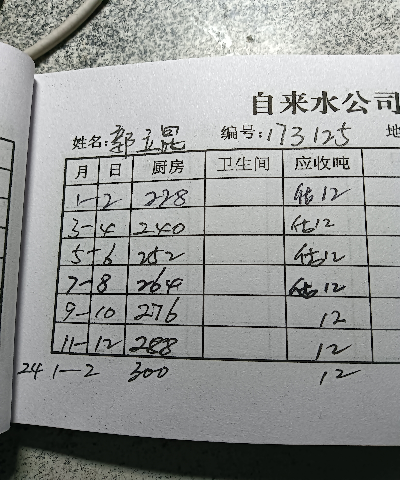 自来水公司
姓名:郭立晁 编号:173125 地
月 日 厨房 卫生间 应收吨
1-2 228 估12
3-4 240 估12
5-6 252 估12
7-8 264 估12
9-10 276 12
11-12 288 12
24 1-2 300 12